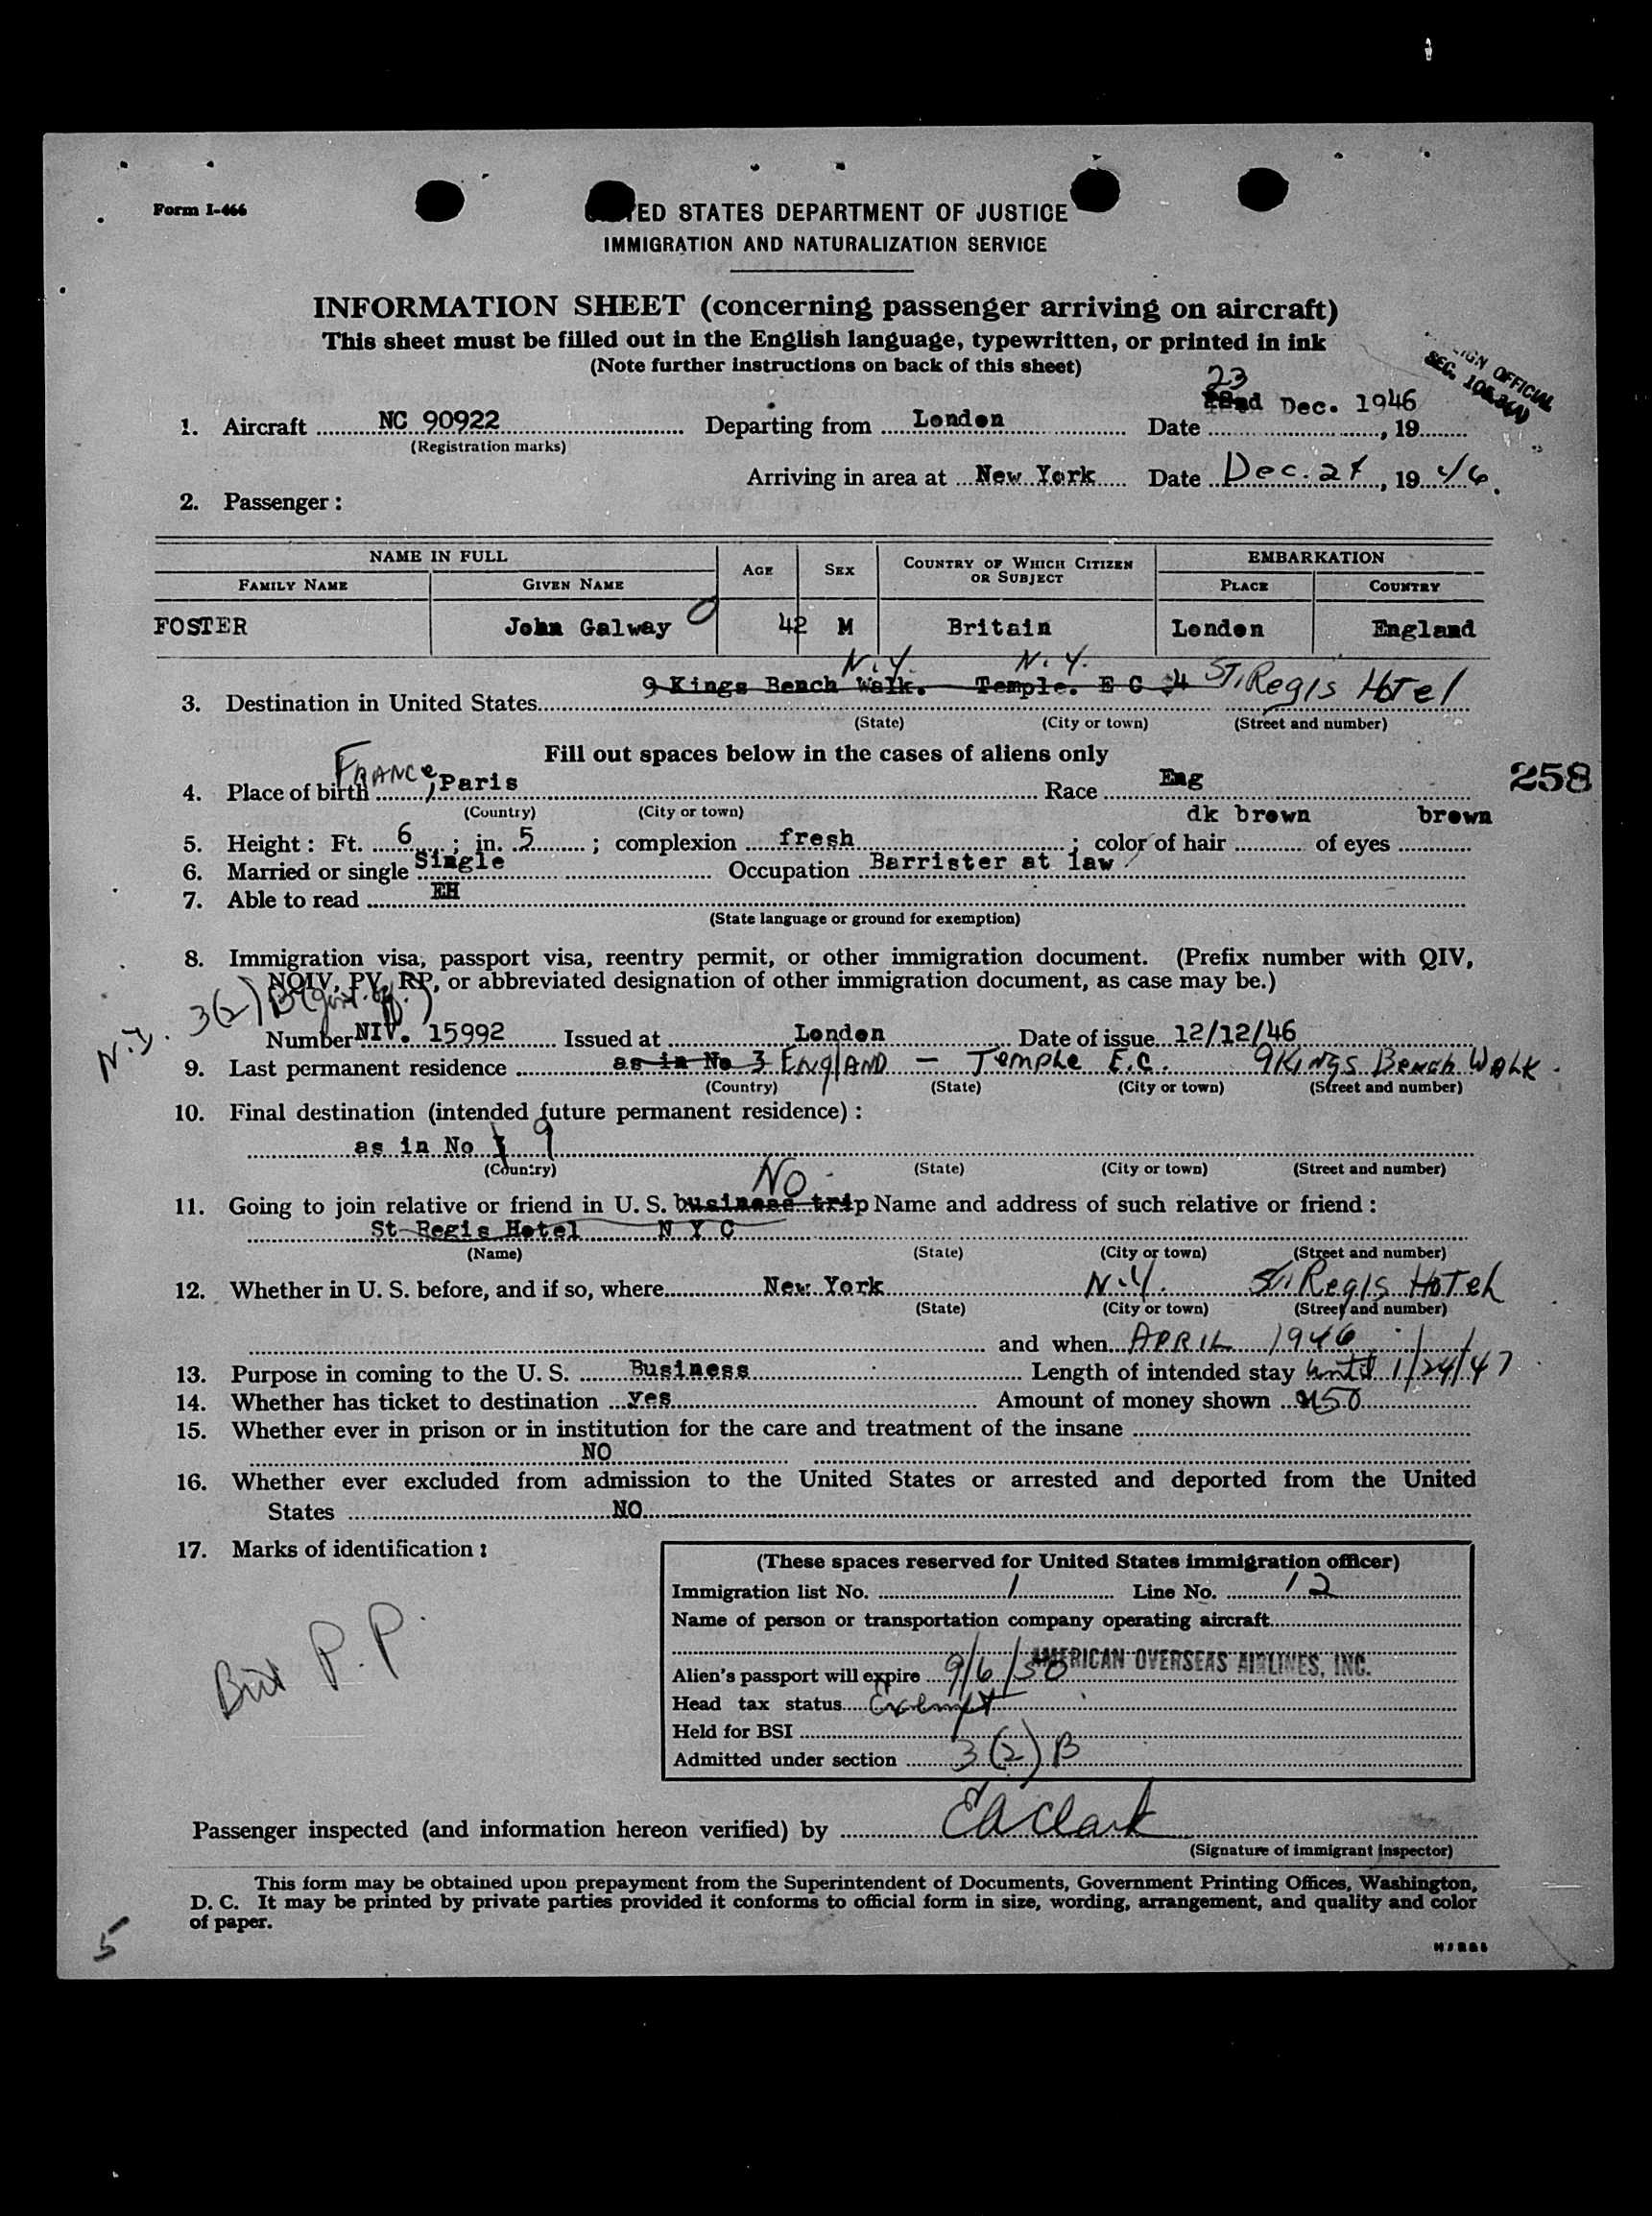 Form I-466
UNITED STATES DEPARTMENT OF JUSTICE
IMMIGRATION AND NATURALIZATION SERVICE
INFORMATION SHEET (concerning passenger arriving on aircraft)
This sheet must be filled out in the English language, typewritten, or printed in ink
(Note further instructions on back of this sheet)
OFFICIAL
SEC.
23
22nd Dec. 1946
1. Aircraft NC 90922 Departing from London Date , 19
(Registration marks)
Arriving in area at New York Date Dec. 24, 1946.
2. Passenger:
NAME IN FULL AGE SEX COUNTRY OF WHICH CITIZEN OR SUBJECT EMBARKATION
FAMILY NAME GIVEN NAME PLACE COUNTRY
FOSTER John Galway 42 M Britain London England
N.Y. N.Y. St. Regis Hotel
9 Kings Bench Walk. Temple. E C 4
3. Destination in United States
(State) (City or town) (Street and number)
Fill out spaces below in the cases of aliens only
258
4. Place of birth FRANCE, Paris Race Eng
(Country) (City or town)
dk brown brown
5. Height: Ft. 6; in. 5; complexion fresh; color of hair of eyes
6. Married or single Single Occupation Barrister at law
7. Able to read EH
(State language or ground for exemption)
8. Immigration visa, passport visa, reentry permit, or other immigration document. (Prefix number with QIV,
NQIV, PV, RP, or abbreviated designation of other immigration document, as case may be.)
N.Y. 3(2)B
Number NIV. 15992 Issued at London Date of issue 12/12/46
9. Last permanent residence as in No 3 ENGLAND - Temple E.C. 9 Kings Bench Walk.
(Country) (State) (City or town) (Street and number)
10. Final destination (intended future permanent residence):
as in No 3 9
(Country) (State) (City or town) (Street and number)
NO
11. Going to join relative or friend in U. S. business trip Name and address of such relative or friend:
St Regis Hotel N Y C
(Name) (State) (City or town) (Street and number)
12. Whether in U. S. before, and if so, where New York N.Y. St. Regis Hotel
(State) (City or town) (Street and number)
and when APRIL 1946
13. Purpose in coming to the U. S. Business Length of intended stay until 1/24/47
14. Whether has ticket to destination yes Amount of money shown 50
15. Whether ever in prison or in institution for the care and treatment of the insane
NO
16. Whether ever excluded from admission to the United States or arrested and deported from the United
States NO
17. Marks of identification:
Brit P.P.
(These spaces reserved for United States immigration officer)
Immigration list No. 1 Line No. 12
Name of person or transportation company operating aircraft
AMERICAN OVERSEAS AIRLINES, INC.
Alien's passport will expire 9/6/50
Head tax status Exempt
Held for BSI
Admitted under section 3(2)B
Passenger inspected (and information hereon verified) by EA Clark
(Signature of immigrant inspector)
This form may be obtained upon prepayment from the Superintendent of Documents, Government Printing Offices, Washington,
D. C. It may be printed by private parties provided it conforms to official form in size, wording, arrangement, and quality and color
of paper.
5